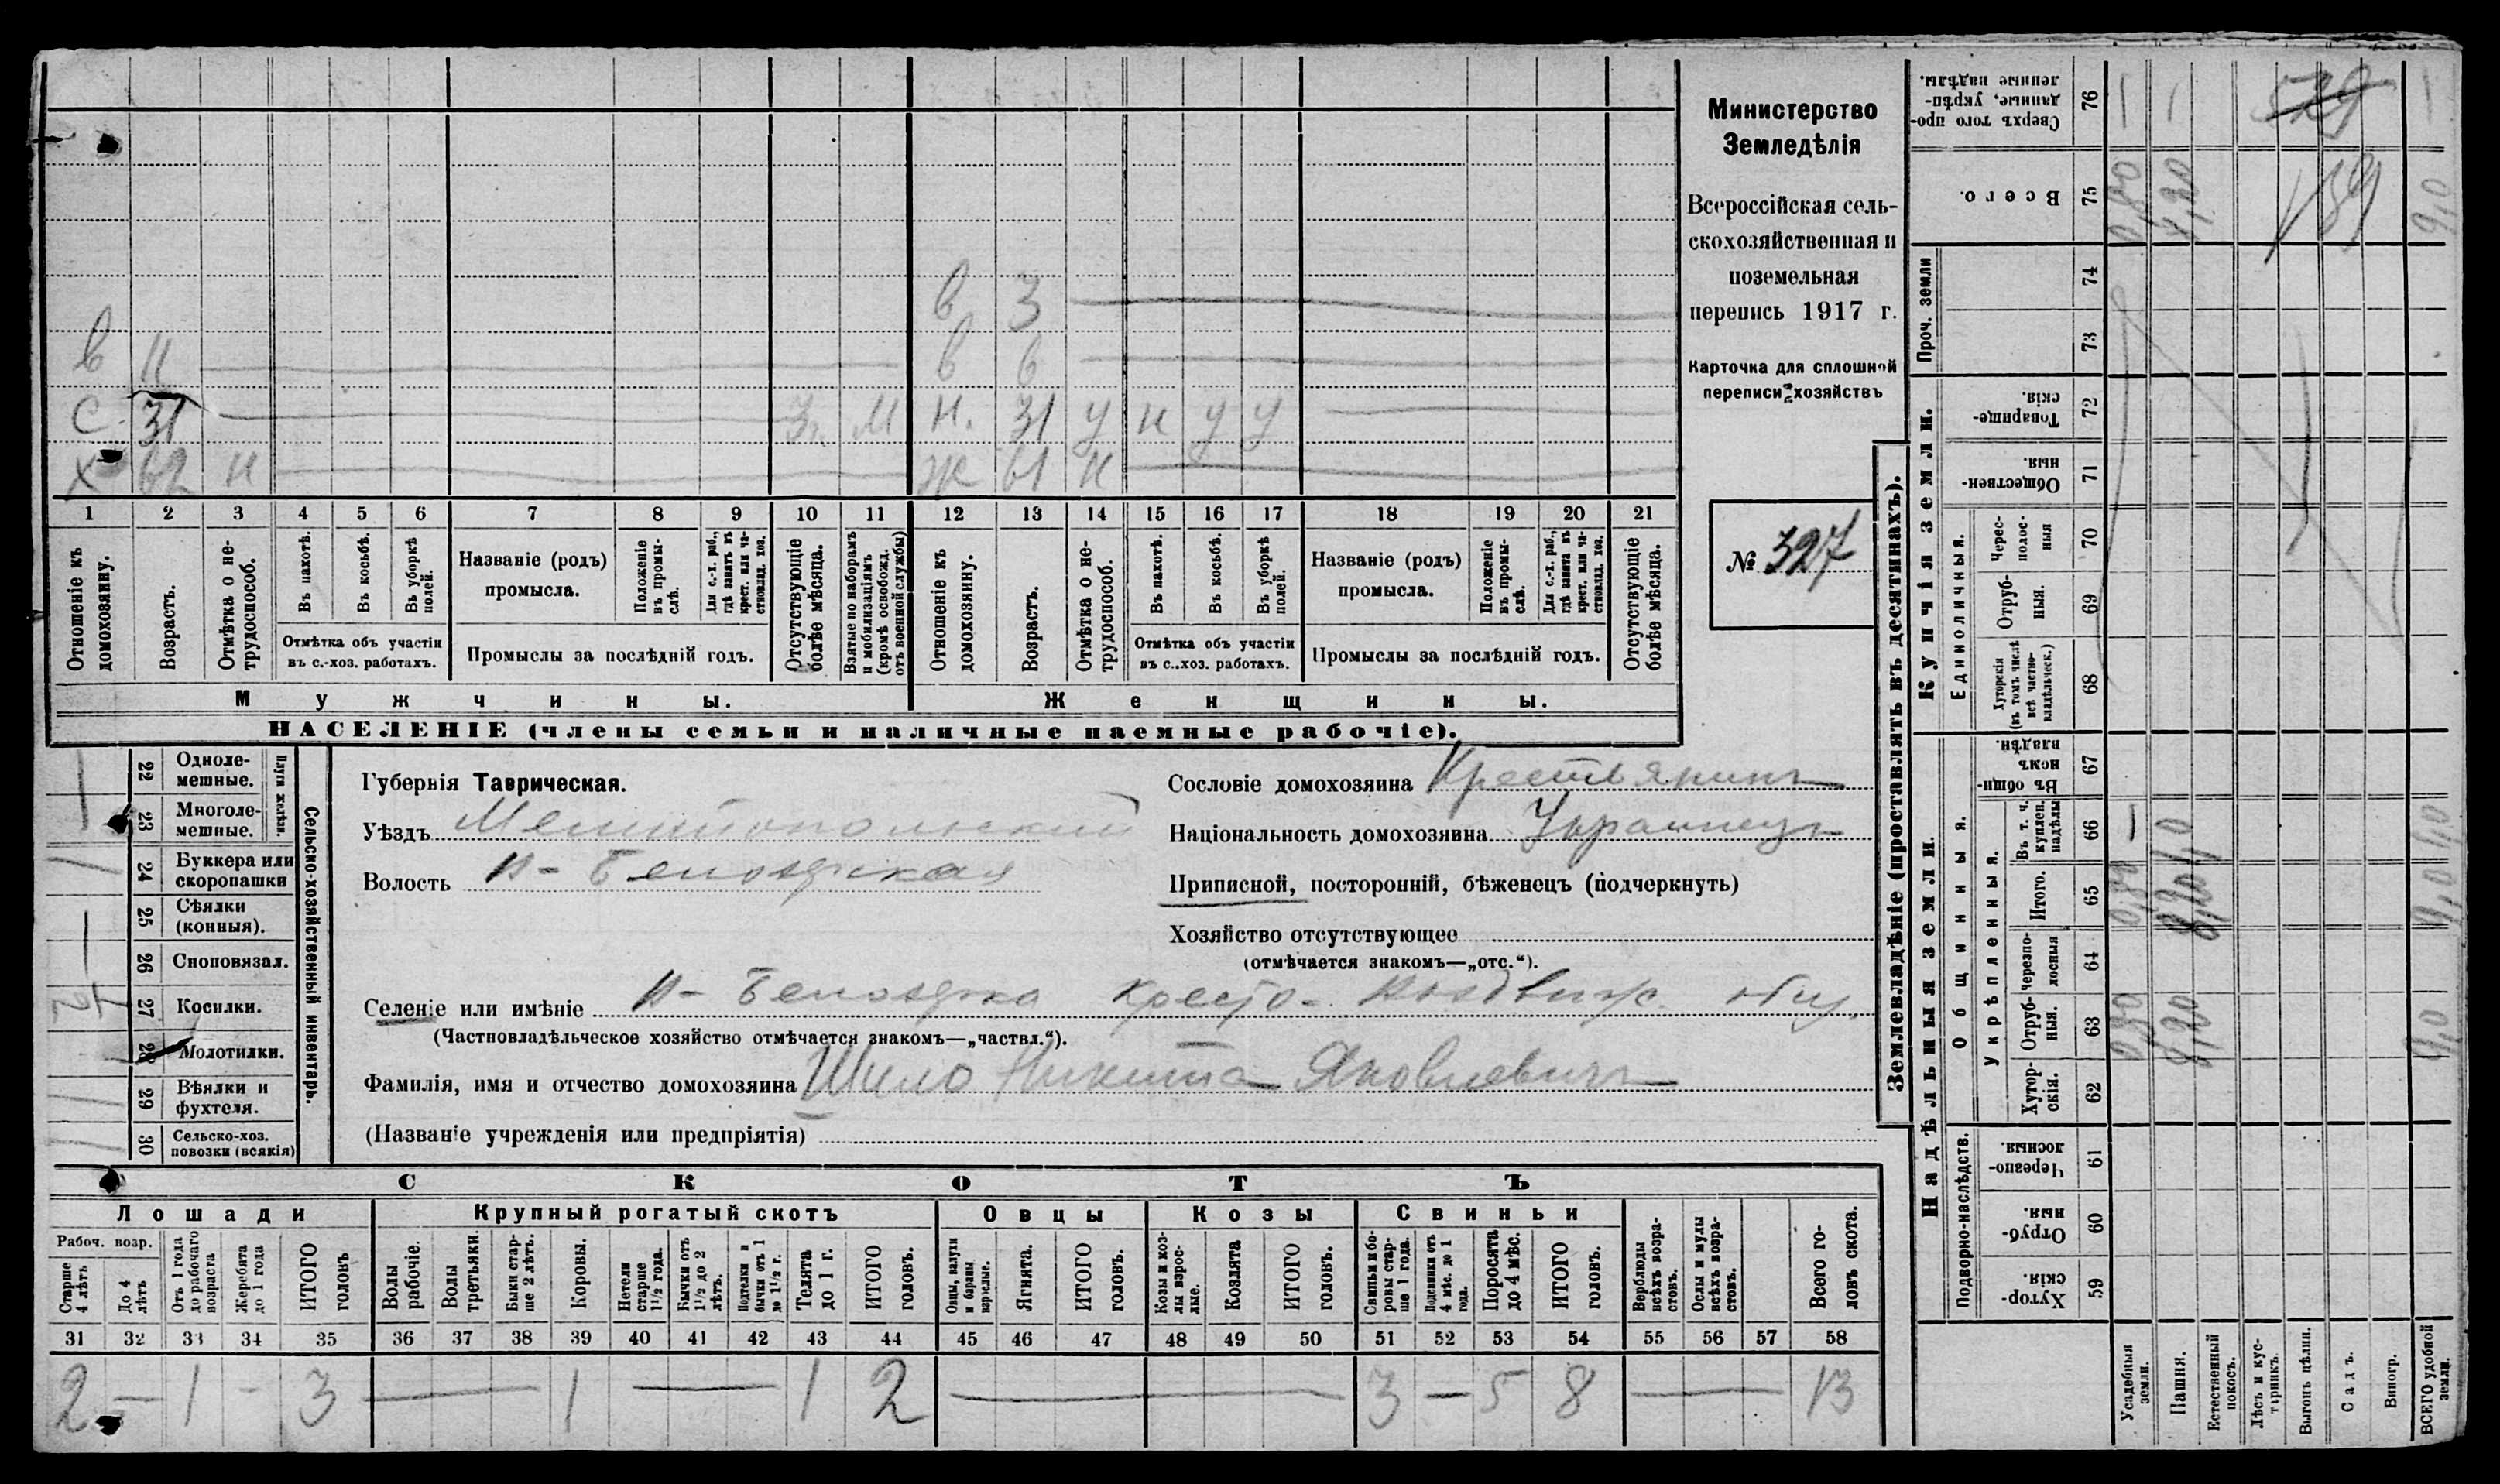 Министерство
Земледѣлія
Всероссійская сель-
скохозяйственная и
поземельная
перепись 1917 г.
Карточка для сплошной
переписи хозяйствъ
№ 327
в 3
в 11 в 6
С. 31 З. М Н. 31 у н у у
Х 62 н Ж 61 н
1 2 3 4 5 6 7 8 9 10 11 12 13 14 15 16 17 18 19 20 21
Отношеніе къ домохозяину.
Возрастъ.
Отмѣтка о не-
трудоспособ.
Въ пахотѣ.
Въ косьбѣ.
Въ уборкѣ
полей.
Отмѣтка объ участіи
въ с.-хоз. работахъ.
Названіе (родъ)
промысла.
Положеніе
въ промы-
слѣ.
Для с.-х. раб.,
гдѣ занятъ въ
крест. или ча-
стновлад. хоз.
Промыслы за послѣдній годъ.
Отсутствующіе
болѣе мѣсяца.
Взятые по наборамъ
и мобилизаціямъ
(кромѣ освобожд.
отъ военной службы)
Отношеніе къ
домохозяину.
Возрастъ.
Отмѣтка о не-
трудоспособ.
Въ пахотѣ.
Въ косьбѣ.
Въ уборкѣ
полей.
Отмѣтка объ участіи
въ с..хоз. работахъ.
Названіе (родъ)
промысла.
Положеніе
въ промы-
слѣ.
Для с.-х. раб.,
гдѣ занята въ
крест. или ча-
стновлад. хоз.
Промыслы за послѣдній годъ.
Отсутствующіе
болѣе мѣсяца.
Мужчины.
Женщины.
НАСЕЛЕНІЕ (члены семьи и наличные наемные рабочіе).
22 Одноле-
мешные.
23 Многоле-
мешные.
Плуги желѣзн.
24 Буккера или
скоропашки
25 Сѣялки
(конныя).
26 Сноповязал.
27 Косилки.
28 Молотилки.
29 Вѣялки и
фухтеля.
30 Сельско-хоз.
повозки (всякія)
Сельско-хозяйственный инвентарь.
Губернія Таврическая.
Уѣздъ Мелитопольский
Волость Н-Белозерская
Сословіе домохозяина Крестьянинъ
Національность домохозяина Украинецъ
Приписной, посторонній, бѣженецъ (подчеркнуть)
Хозяйство отсутствующее
(отмѣчается знакомъ—„отс.“).
Селеніе или имѣніе Н-Белозерка Кресто-Воздвиж. общ.
(Частновладѣльческое хозяйство отмѣчается знакомъ—„частвл.“).
Фамилія, имя и отчество домохозяина Шило Никита Яковлевичъ
(Названіе учрежденія или предпріятія)
СКОТЪ
Лошади Крупный рогатый скотъ Овцы Козы Свиньи
Рабоч. возр.
Старше
4 лѣтъ
До 4
лѣтъ
Отъ 1 года
до рабочаго
возраста
Жеребята
до 1 года
ИТОГО
головъ
Волы
рабочіе.
Волы
третьяки.
Быки стар-
ше 2 лѣтъ.
Коровы.
Нетели
старше
1½ года.
Бычки отъ
1½ до 2
лѣтъ.
Подтелки и
бычки отъ 1
до 1½ г.
Телята
до 1 г.
ИТОГО
головъ.
Овцы, валухи
и бараны
взрослые.
Ягнята.
ИТОГО
головъ.
Козы и коз-
лы взрос-
лые.
Козлята
ИТОГО
головъ.
Свиньи и бо-
ровы стар-
ше 1 года.
Подсвинки отъ
4 мѣс. до 1
года.
Поросята
до 4 мѣс.
ИТОГО
головъ.
Верблюды
всѣхъ возра-
стовъ.
Ослы и мулы
всѣхъ возра-
стовъ.
Всего го-
ловъ скота.
31 32 33 34 35 36 37 38 39 40 41 42 43 44 45 46 47 48 49 50 51 52 53 54 55 56 57 58
2 – 1 – 3 — 1 — 1 2 — 3 – 5 8 — 13
Землевладѣніе (проставлять въ десятинахъ).
Купчія земли.
Надѣльныя земли.
Сверхъ того про-
данные, укрѣп-
ленные надѣлы.
76
Всего.
75 0,80 8,20 189 9,0
Проч. земли
74
73
Товарище-
скія.
72
Обществен-
ныя.
71
Единоличныя.
Черес-
полос-
ныя
70
Отруб-
ныя.
69
Хуторскія
(въ томъ числѣ
всѣ частно-
владѣльческ.)
68
Общинныя.
Въ общи
номъ
владѣн.
67
Укрѣпленныя.
Въ т. ч.
куплен.
надѣлы
66
Итого.
65 0,80 8,20 9,0
Черезпо-
лосныя
64
Отруб-
ныя.
63 0,80 8,20 9,0
Хутор-
скія.
62
Подворно-наслѣдств.
Черезпо-
лосныя
61
Отруб-
ныя.
60
Хутор-
скія.
59
Усадебныя
земли.
Пашня.
Естественный
покосъ.
Лѣсъ и кус-
тарникъ.
Выгонъ цѣлин.
Садъ.
Виногр.
ВСЕГО удобной
земли.